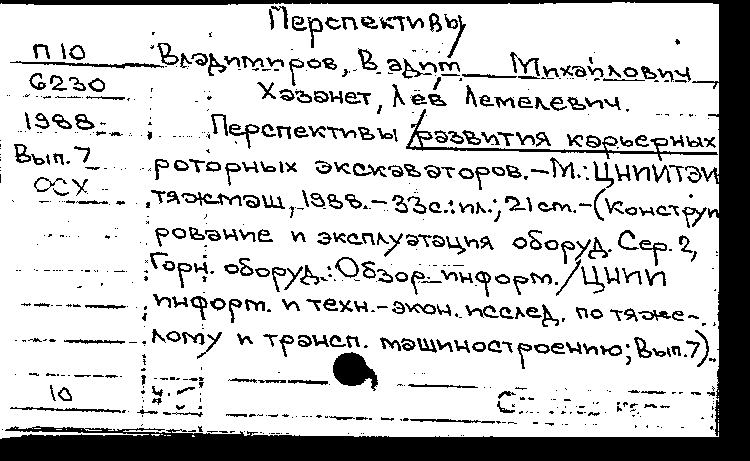 Перспективы
П 10 Владимиров, Вадим Михайлович
6230 Хазанет, Лев Лемелевич.
1988 Перспективы развития карьерных
Вып. 7 роторных экскаваторов. – М.: ЦНИИТЭИ
ОСХ тяжмаш, 1988. – 33с.: ил.; 21 см. – (Конструи
рование и эксплуатация оборуд. Сер. 2,
Горн. оборуд.: Обзор. информ. / ЦНИИ
информ. и техн.-экон. исслед. по тяже-
лому и трансп. машиностроению; Вып. 7).
10